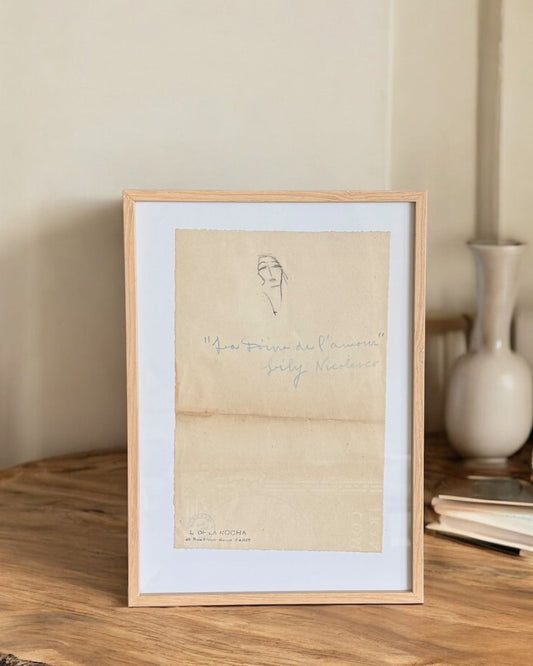 "La Divine de l'amour"
Lily Nicolesco
L. DE LA ROCHA
PARIS